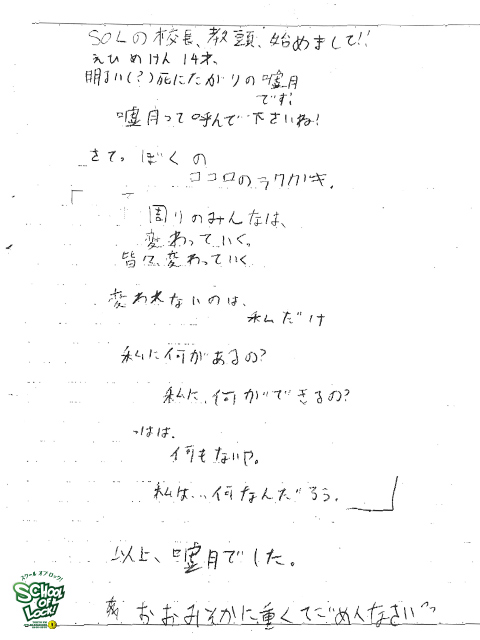 SOLの校長、教頭、始めまして!!
えひめけん 14才、
明るい(?)死にたがりの嘘月
です!
嘘月って呼んで下さいね!
さて。ぼくの
ココロのラクガキ.
「
周りのみんなは、
変わっていく。
皆々、変わっていく
変われないのは、
私だけ
私に何があるの?
私に、何ができるの?
っはは.
何もないや。
私は…何なんだろう。」
以上、嘘月でした。
おおみそかに重くてごめんなさい
スクールオブロック!
SCHOOL
OF
LOCK!